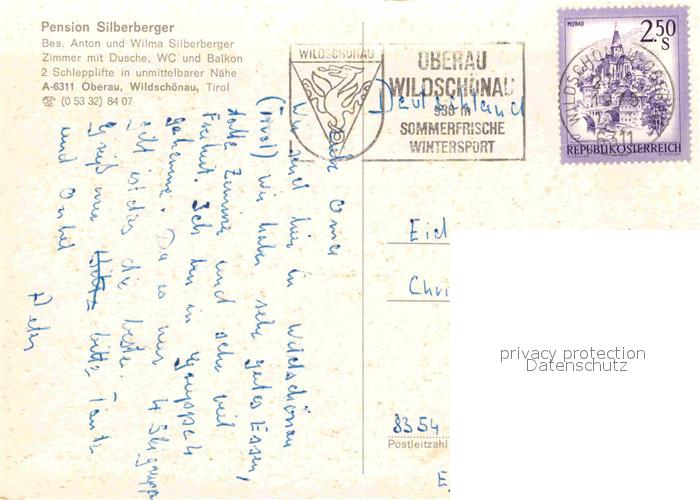 Pension Silberberger
Bes. Anton und Wilma Silberberger
Zimmer mit Dusche, WC und Balkon
2 Schlepplifte in unmittelbarer Nähe
A-6311 Oberau, Wildschönau, Tirol
☎ (0 53 32) 84 07
WILDSCHÖNAU
OBERAU
WILDSCHÖNAU
936 m
SOMMERFRISCHE
WINTERSPORT
MURAU
2.50
S
REPUBLIK ÖSTERREICH
6311
Deutschland
Liebe Oma
Wir sind hier in Wildschönau
(Tirol) Wir haben sehr gutes Essen,
tolle Zimmer und sehr viel
Freiheit. Ich bin in Gruppe 4
gekommen. Da es nur 4 Skigruppen
gibt ist das die beste.
Grüß mir bitte Tante
und Onkel
Peter
8354
Postleitzahl
privacy protection
Datenschutz